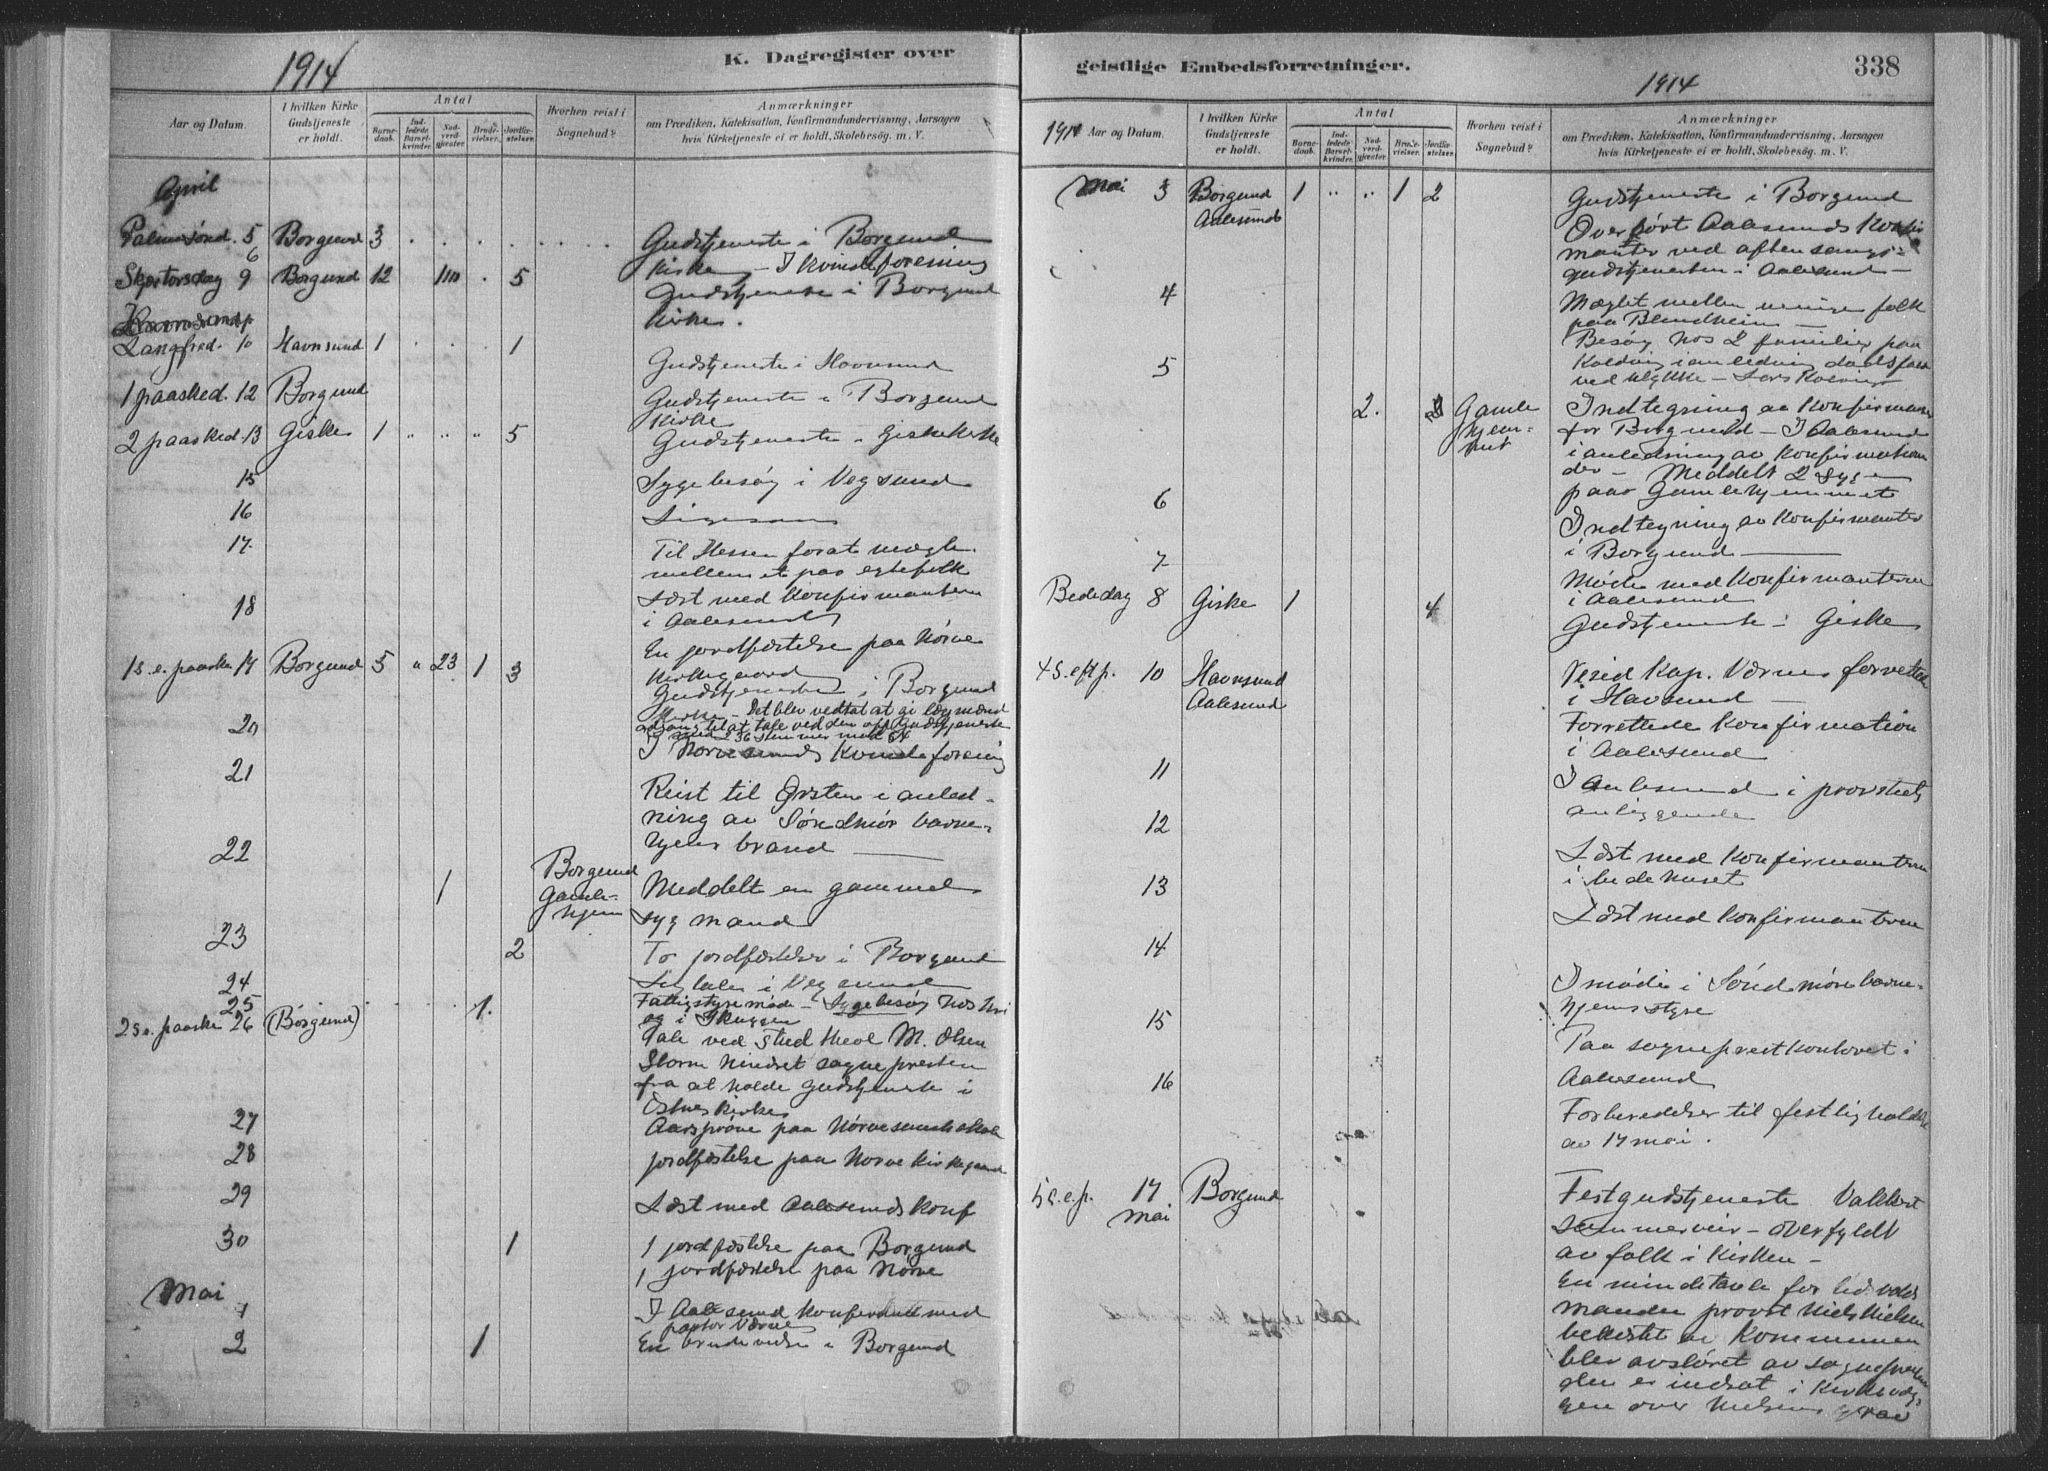 1914
K. Dagregister over
Aar og Datum.
I hvilken Kirke Gudstjeneste er holdt.
Antal
Barne-daab.
Ind-ledede Barsel-kvinder.
Nad-verd-gjæster.
Brude-vielser.
Jordfæ-stelser.
Hvorhen reist i Sognebud?
Anmærkninger
om Prædiken, Katekisation, Konfirmandundervisning, Aarsagen
hvis Kirketjeneste ei er holdt, Skolebesøg. m. V.
April
Palmesønd. 5 Borgund 3 Gudstjeneste i Borgund
6 Kirke — I Kvindeforening
Skjærtorsdag 9 Borgund 12 5 Gudstjeneste i Borgund
Kirke.
Langfred. 10 Havnsund 1 1 Gudstjeneste i Havnsund
1 paasked. 12 Borgund Gudstjeneste i Borgund
Kirke
2 paasked. 13 Giske 1 " " " 5 Gudstjeneste i Giske Kirke
15 Sygebesøg i Vegsund
16 Ligesaa
17. Til Hessen forat mægle
mellem et par egtefolk
18 Læst med Konfirmanterne
i Aalesund
En jordfæstelse paa Nørve
Kirkegaard
1 s. e. paaske 19 Borgund 5 " 23 1 3 Gudstjeneste i Borgund
Kirke — Det blev vedtat at gi lægmænd
adgang til at tale ved den off. Gudstjeneste
36 stemmer mot
20 I Nørvesunds Kvindeforening
21 Reist til Ørsten i anled-
ning av Søndmør barne-
hjems brand
22 1 Borgund Gamle-hjem Meddelt en gammel
syg mand
23 2 To jordfæstelser i Borgund
24 Ligtale i Vegsund
25 1. Fattigstyremøde — Sygebesøg hos
og i Skuggen
2 s. e. paaske 26 (Borgund) Tale ved Stud theol M. Olsen
Storm hindret sognepresten
fra at holde gudstjeneste i
Kirke
27 Aarsprøve paa Nørvesund skole
28 jordfæstelse paa Nørve Kirkegaard
29 Læst med Aalesunds Konf
30 1 1 jordfæstelse paa Borgund
1 jordfæstelse paa Nørve
Mai
1 I Aalesund Konferanse med
pastor Værne
2 1 En brudevielse i Borgund
geistlige Embedsforretninger.
338
1914
1914 Aar og Datum.
I hvilken Kirke Gudstjeneste er holdt.
Antal
Barne-daab.
Ind-ledede Barsel-kvinder.
Nad-verd-gjæster.
Brude-vielser.
Jordfæ-stelser.
Hvorhen reist i Sognebud?
Anmærkninger
om Prædiken, Katekisation, Konfirmandundervisning, Aarsagen
hvis Kirketjeneste ei er holdt, Skolebesøg. m. V.
Mai 3 Borgund 1 " " 1 2 Gudstjeneste i Borgund
Aalesund Overhørt Aalesunds Konfir
manter ved aftensangs-
gudstjenesten i Aalesund —
4 Mæglet mellem uenige folk
paa Blindheim —
Besøg hos 2 familier paa
5 Kolvig i anledning dødsfald
ved ulykke —
2. Gamle hjem-met Indtegning av Konfirmanter
for Borgund — I Aalesund
i anledning av Konfirmationen
der — Meddelt 2 syge
paa Gamlehjemmet
6 Indtegning av Konfirmanter
i Borgund
7 Møde med Konfirmanterne
i Aalesund
Bededag 8 Giske 1 4 Gudstjeneste i Giske
4 S. eft p. 10 Havnsund Resid Kap. Værne forrettede
Aalesund i Havnsund —
Forrettede Konfirmation
i Aalesund
11 I Aalesund i provstiets
anliggende
12 Læst med Konfirmanterne
i bedehuset
13 Læst med Konfirmanterne
14 I møde i Søndmøre barne-
hjems styre
15 Paa sogneprestkontoret i
Aalesund
16 Forberedelser til festligholdelse
av 17 mai.
5 s. e. p. 17 mai Borgund Festgudstjeneste Vakkert
sommerveir — overfyldt
av folk i kirken —
En mindetavle for Eidsvolds
manden provst Niels Nielsen
bekostet av Kommunen
blev avsløret av sognepresten
den er indsat i Kirkevæg-
gen over Nielsens grav